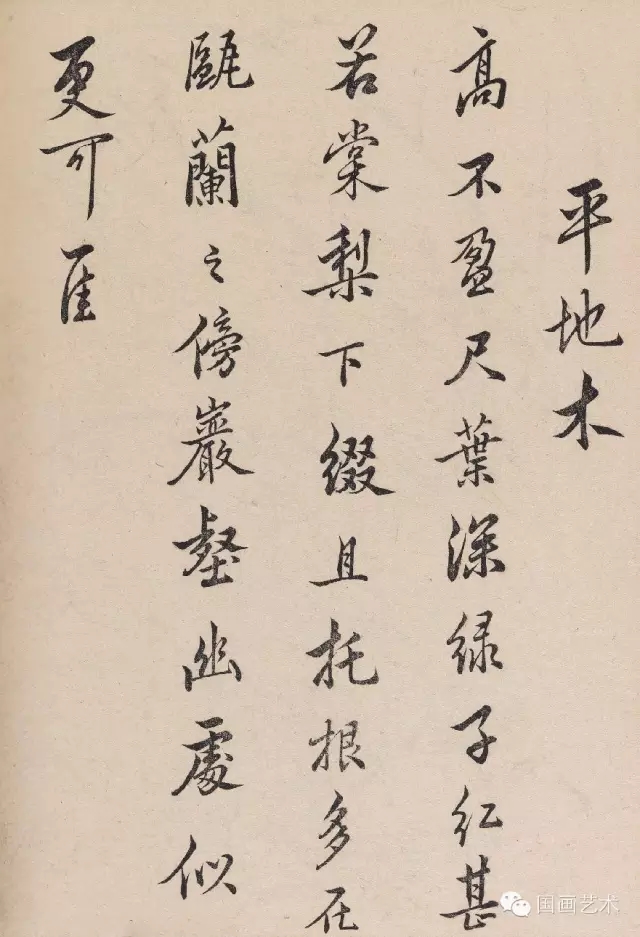 平地木
高不盈尺葉深緑子红甚
若棠梨下缀且托根多在
甌蘭之傍巖壑幽處似
更可佳
国画艺术